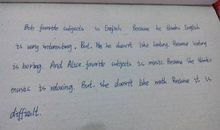 Bob favorite subject is English. Because he thinks English
is very interesting. But. he doesn't like history. Because history
is boring. And Alice favorite subject is music. Because she thinks
music is relaxing. But. she doesn't like math. Because it is
difficult.